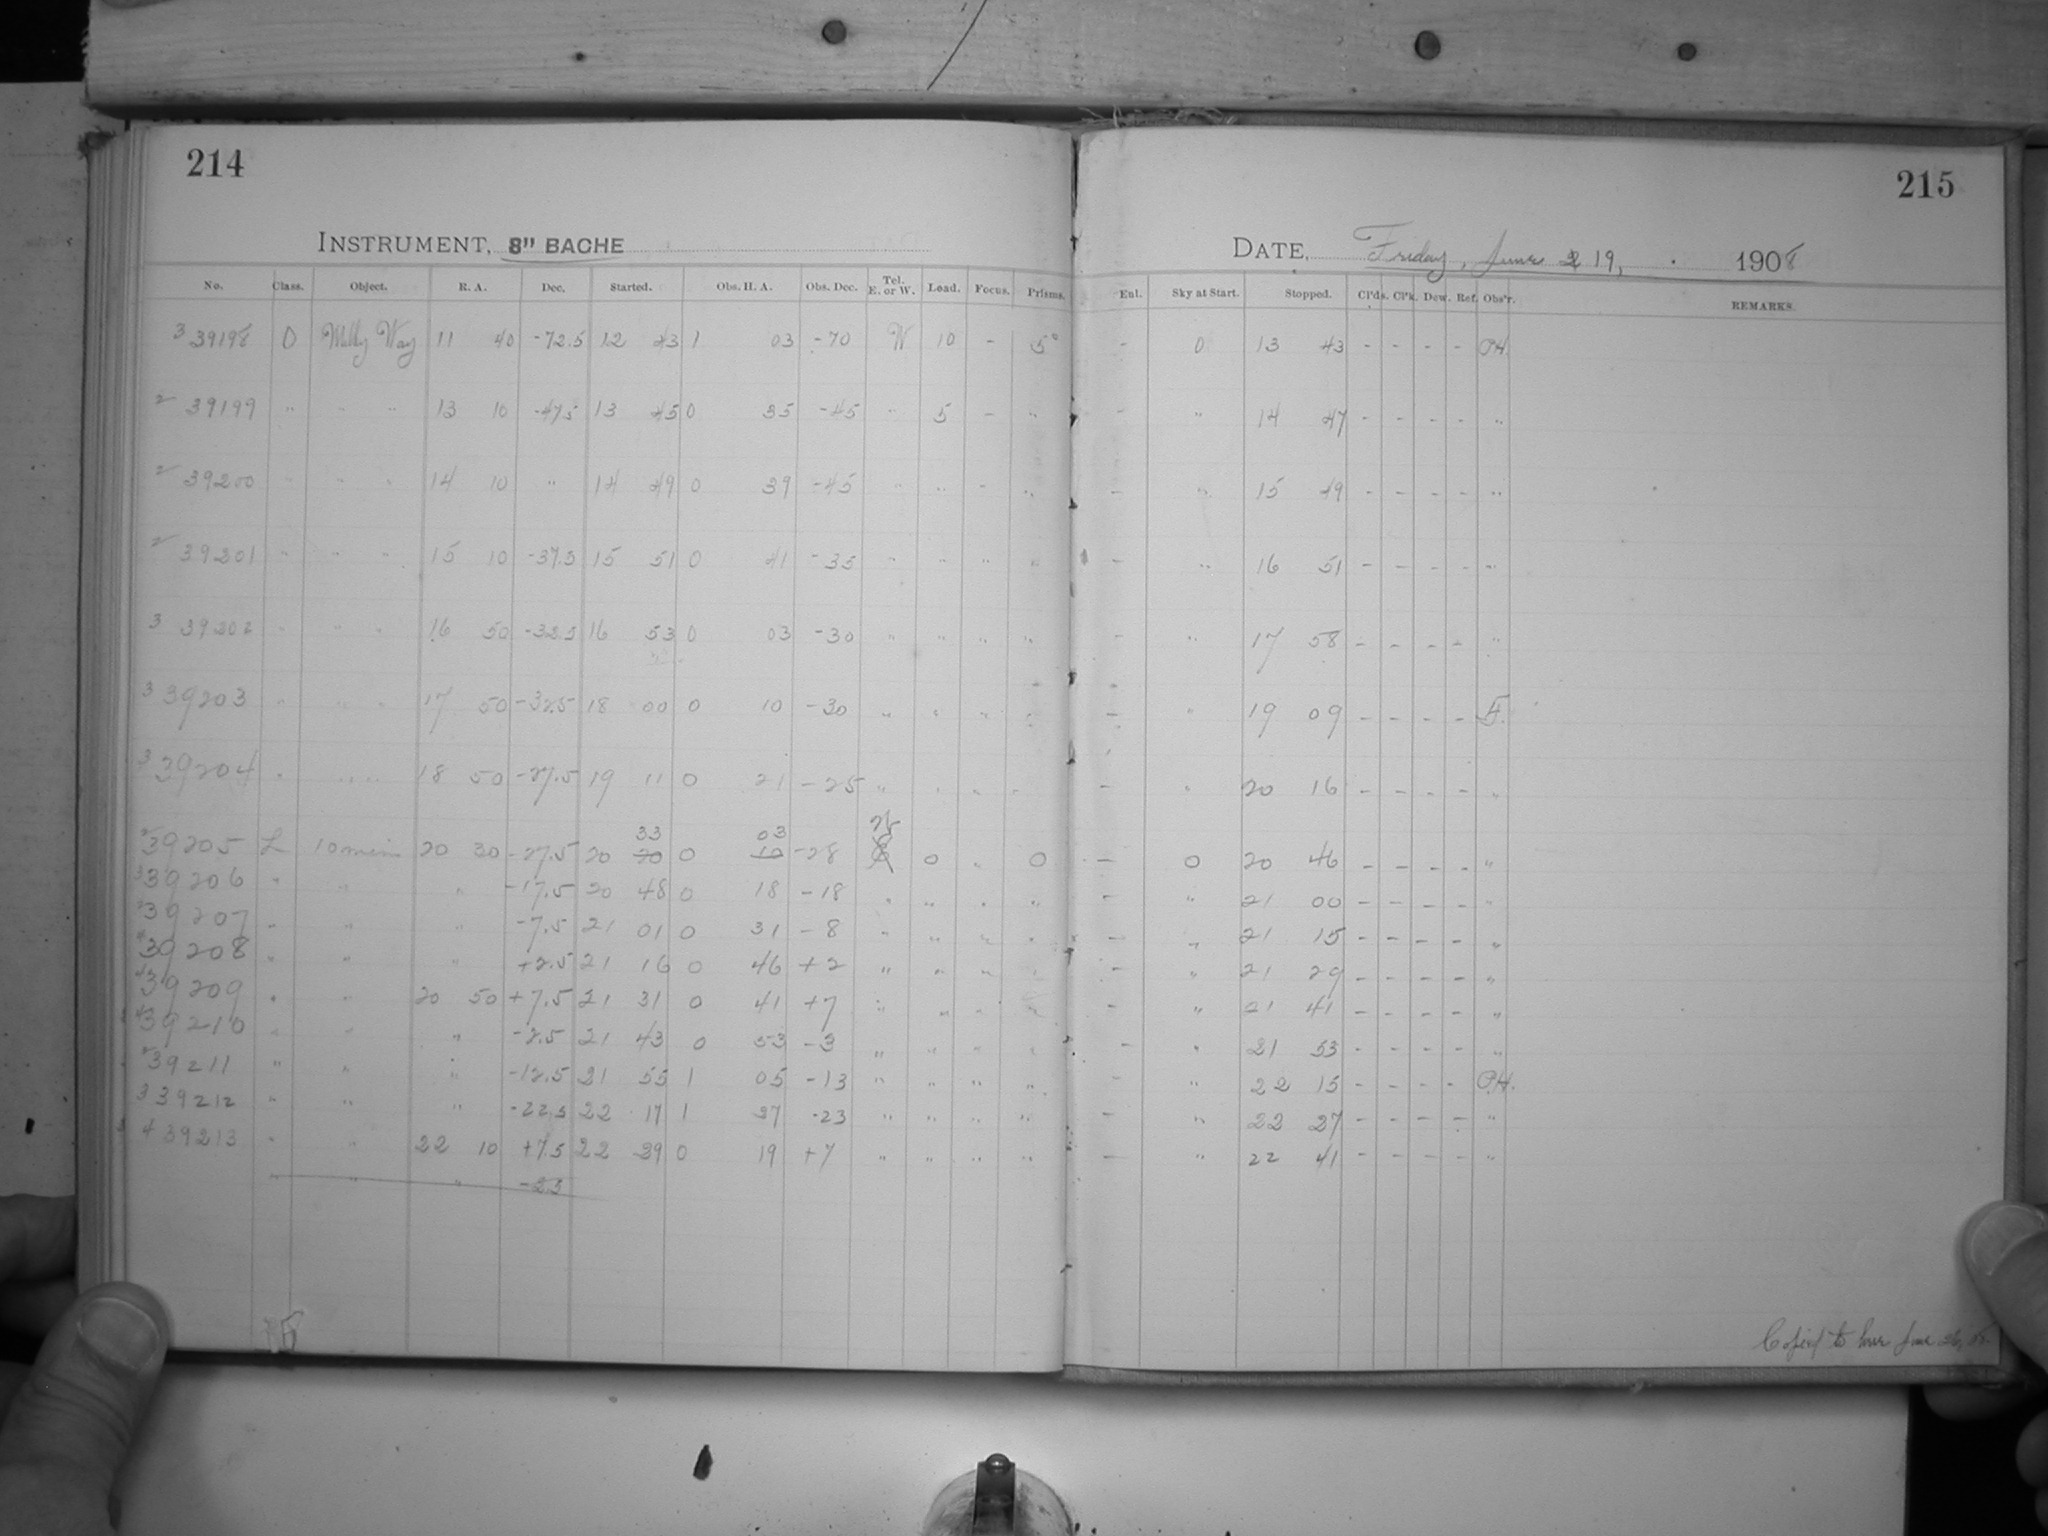 214
215
INSTRUMENT, 8" BACHE
DATE, Friday, June 19, 1908
No. Class. Object. R. A. Dec. Started. Obs. H. A. Obs. Dec. Tel. E. or W. Load. Focus. Prisms. Enl. Sky at Start. Stopped. Cl'ds. Cl'k. Dew. Ref. Obs'r. REMARKS.
3 39198 D Milky Way 11 40 -72.5 12 43 1 03 -70 W 10 - 5° - 0 13 43 - - - - P.H.
2 39199 " " " 13 10 -47.5 13 45 0 35 -45 " 5 - " - " 14 47 - - - - "
2 39200 " " " 14 10 " 14 49 0 39 -45 " " - " - " 15 49 - - - - "
2 39201 " " " 15 10 -37.5 15 51 0 41 -35 " " " " - " 16 51 - - - - "
3 39202 " " " 16 50 -32.5 16 53 0 03 -30 " " " " - " 17 58 - - - - "
3 39203 " " " 17 50 -32.5 18 00 0 10 -30 " " " " - " 19 09 - - - -
3 39204 " " " 18 50 -27.5 19 11 0 21 -25 " " " " - " 20 16 - - - - "
33 03 W
39205 L 10 min 20 30 -27.5 20 20 0 10 -28 0 " 0 - 0 20 46 - - - - "
39206 " " " -17.5 20 48 0 18 -18 " " " " - " 21 00 - - - - "
39207 " " " -7.5 21 01 0 31 -8 " " " " - " 21 15 - - - - "
39208 " " " +2.5 21 16 0 46 +2 " " " " - " 21 29 - - - - "
39209 " " 20 50 +7.5 21 31 0 41 +7 " " " - " 21 41 - - - - "
39210 " " " -2.5 21 43 0 53 -3 " " " " - " 21 53 - - - - "
39211 " " " -12.5 21 55 1 05 -13 " " " " - " 22 15 - - - - P.H.
3 39212 " " " -22.5 22 17 1 27 -23 " " " " - " 22 27 - - - - "
4 39213 " " 22 10 +7.5 22 29 0 19 +7 " " " " - " 22 41 - - - - "
" " " -2.5
Copied to here June 26, 08.